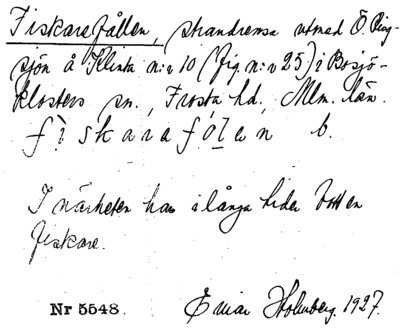 Fiskarefållen, strandremsa utmed Ö. Ring-
sjön å Klinta n:r 10 (fig. n:r 25) i Bosjö-
klosters sn., Frosta hd., Mlm. län.
fìskarafólen b.
I närheten har i långa tider bott en
fiskare.
Nr 5548. Einar Holmberg. 1927.